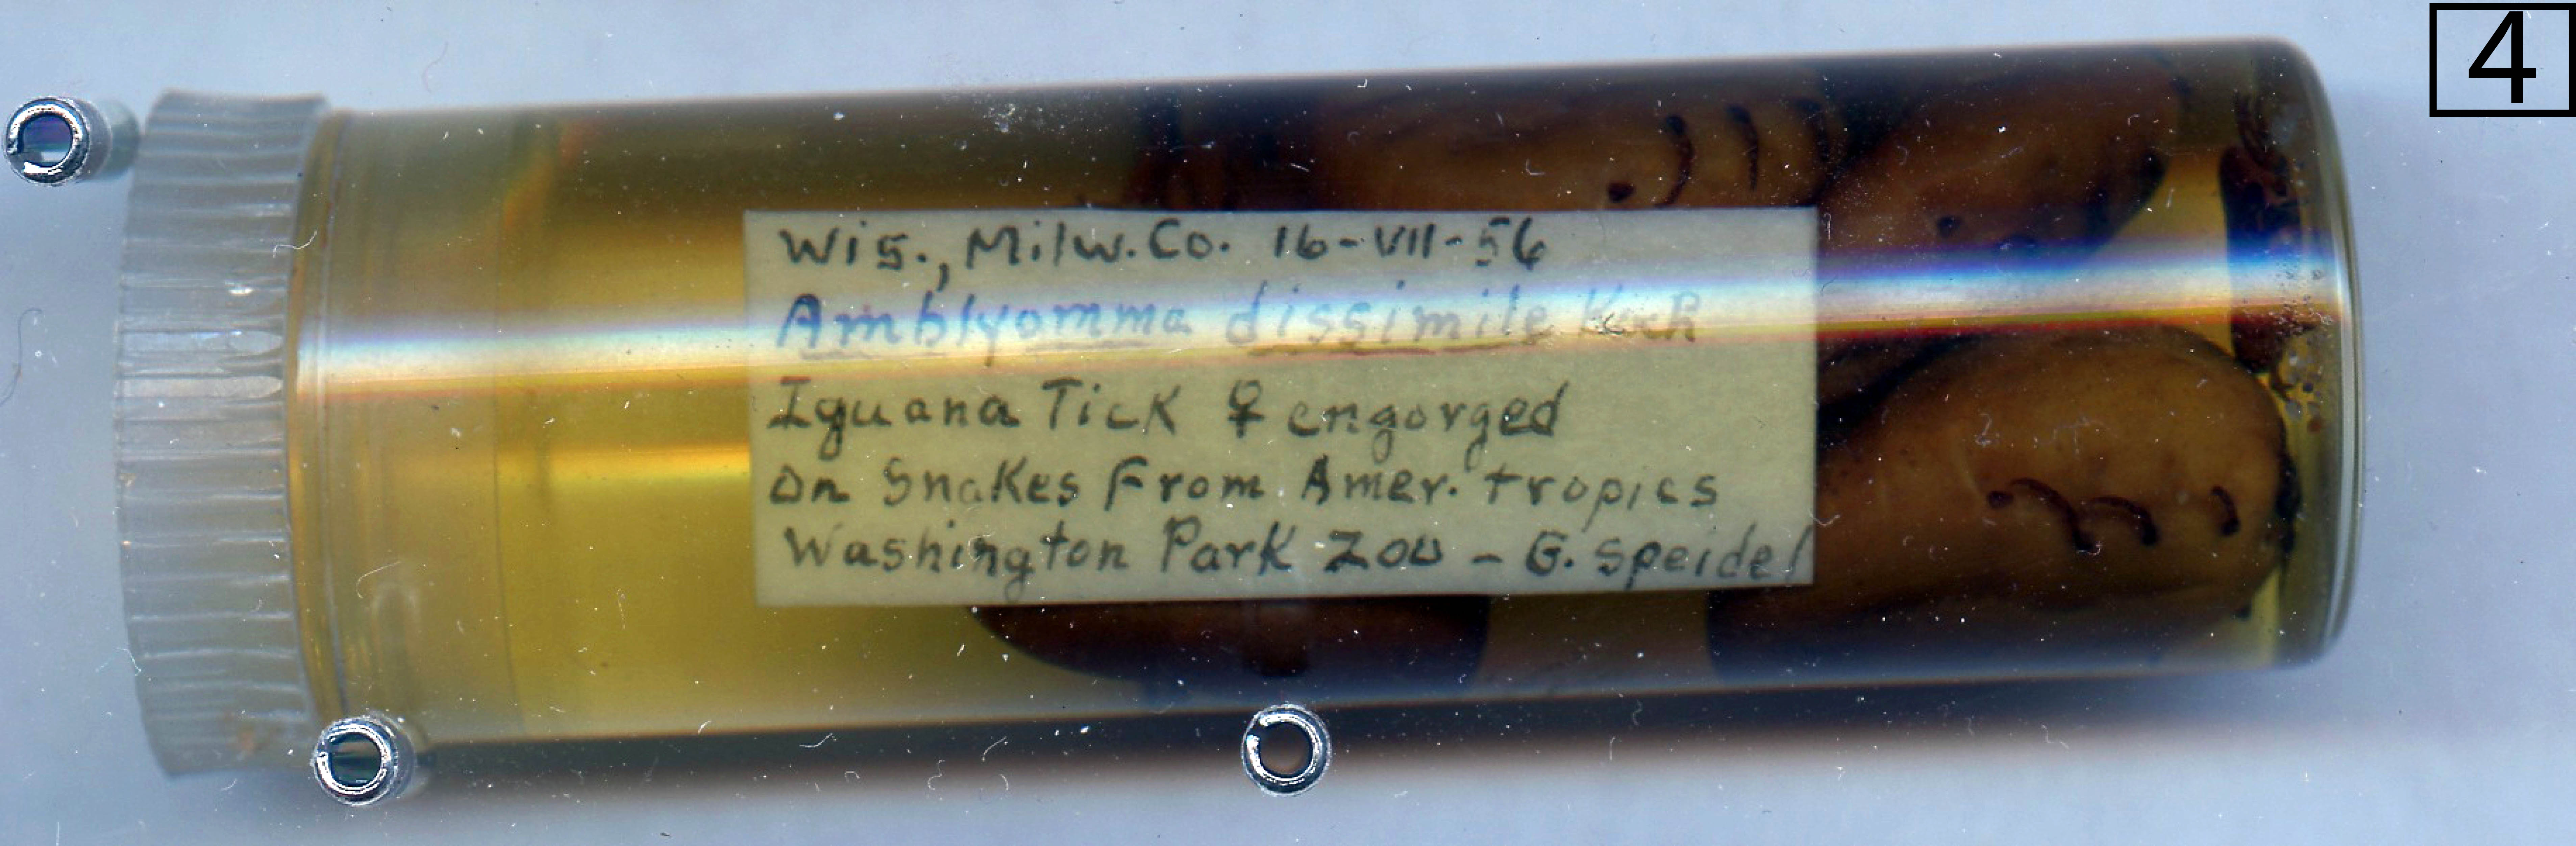 4
Wis., Milw. Co. 16-VII-56
Amblyomma dissimile Koch
Iguana Tick ♀ engorged
on Snakes From Amer. tropics
Washington Park Zoo - G. Speidel